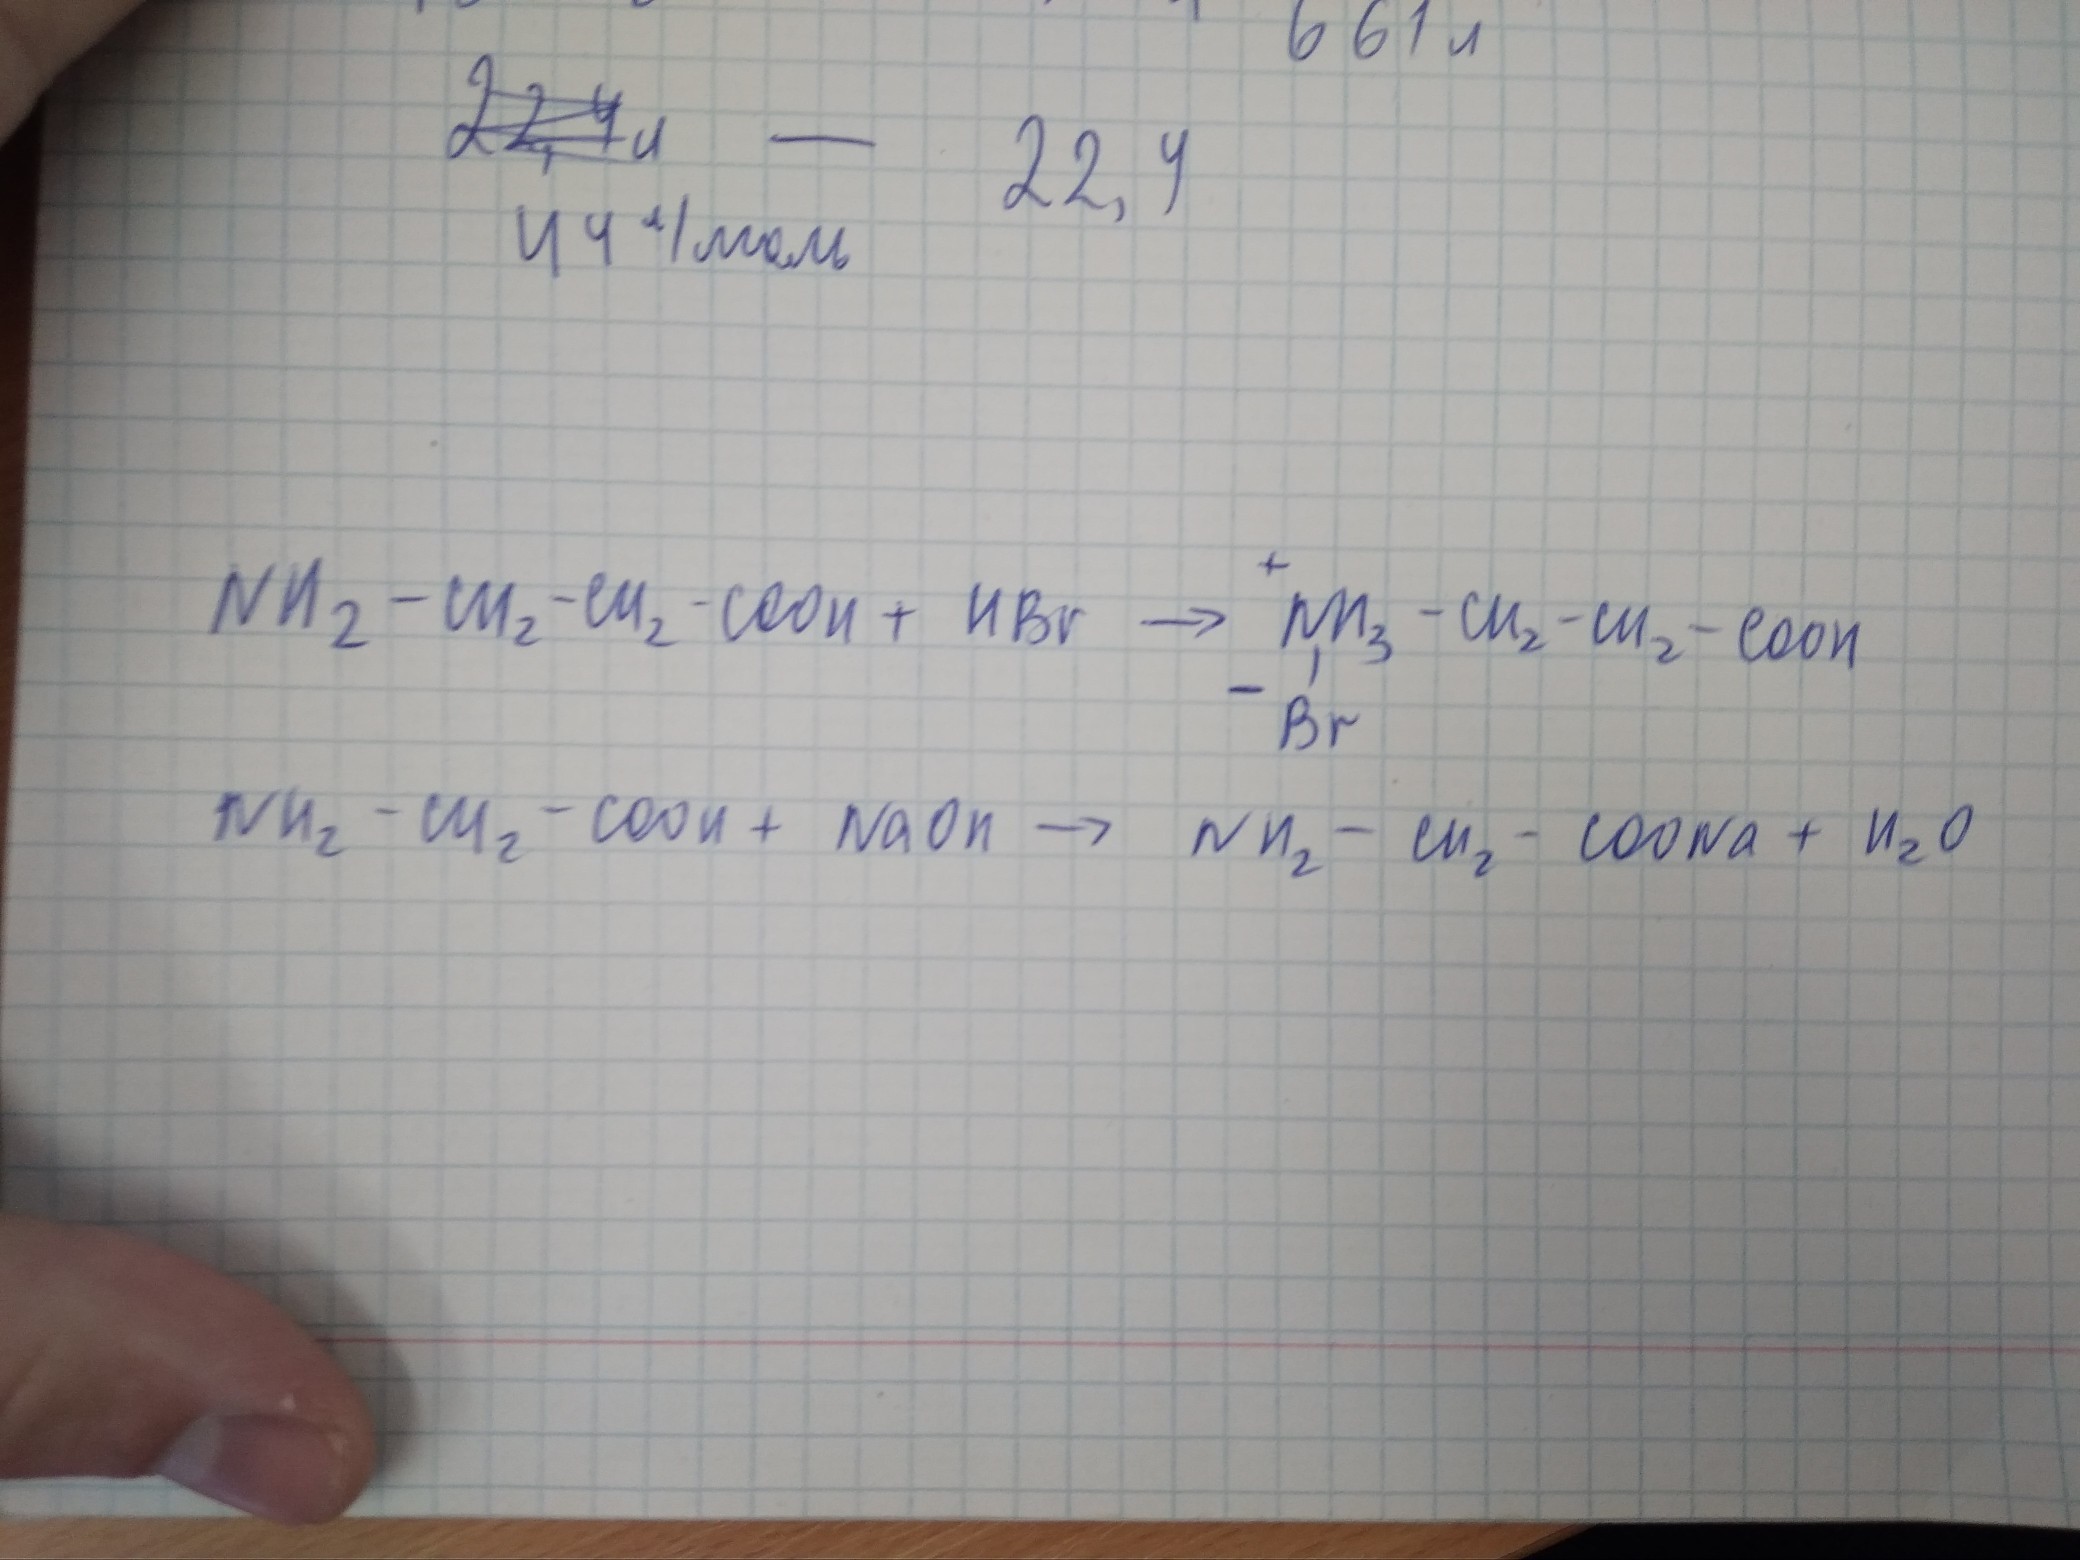 661 л
22,4 л — 22,4
44 г/моль
NH2 - CH2 - CH2 - COOH + HBr → +NH3 - CH2 - CH2 - COOH
- Br
NH2 - CH2 - COOH + NaOH → NH2 - CH2 - COONa + H2O